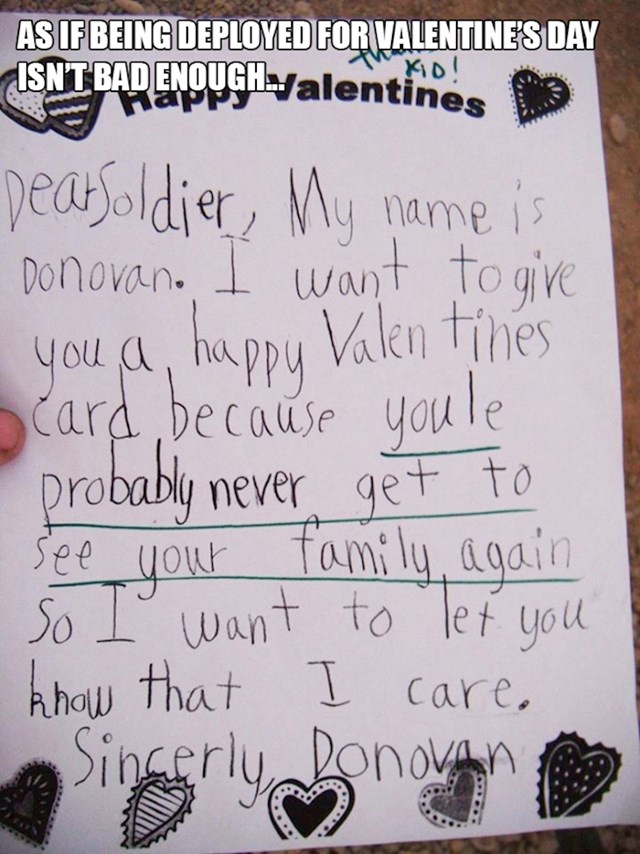 AS IF BEING DEPLOYED FOR VALENTINE'S DAY
ISN'T BAD ENOUGH...
KiD!
Happy Valentines
Dear Soldier, My name is
Donovan. I want to give
you a happy Valentines
card because youle
probably never get to
see your family again
So I want to let you
know that I care.
Sincerly, Donovan